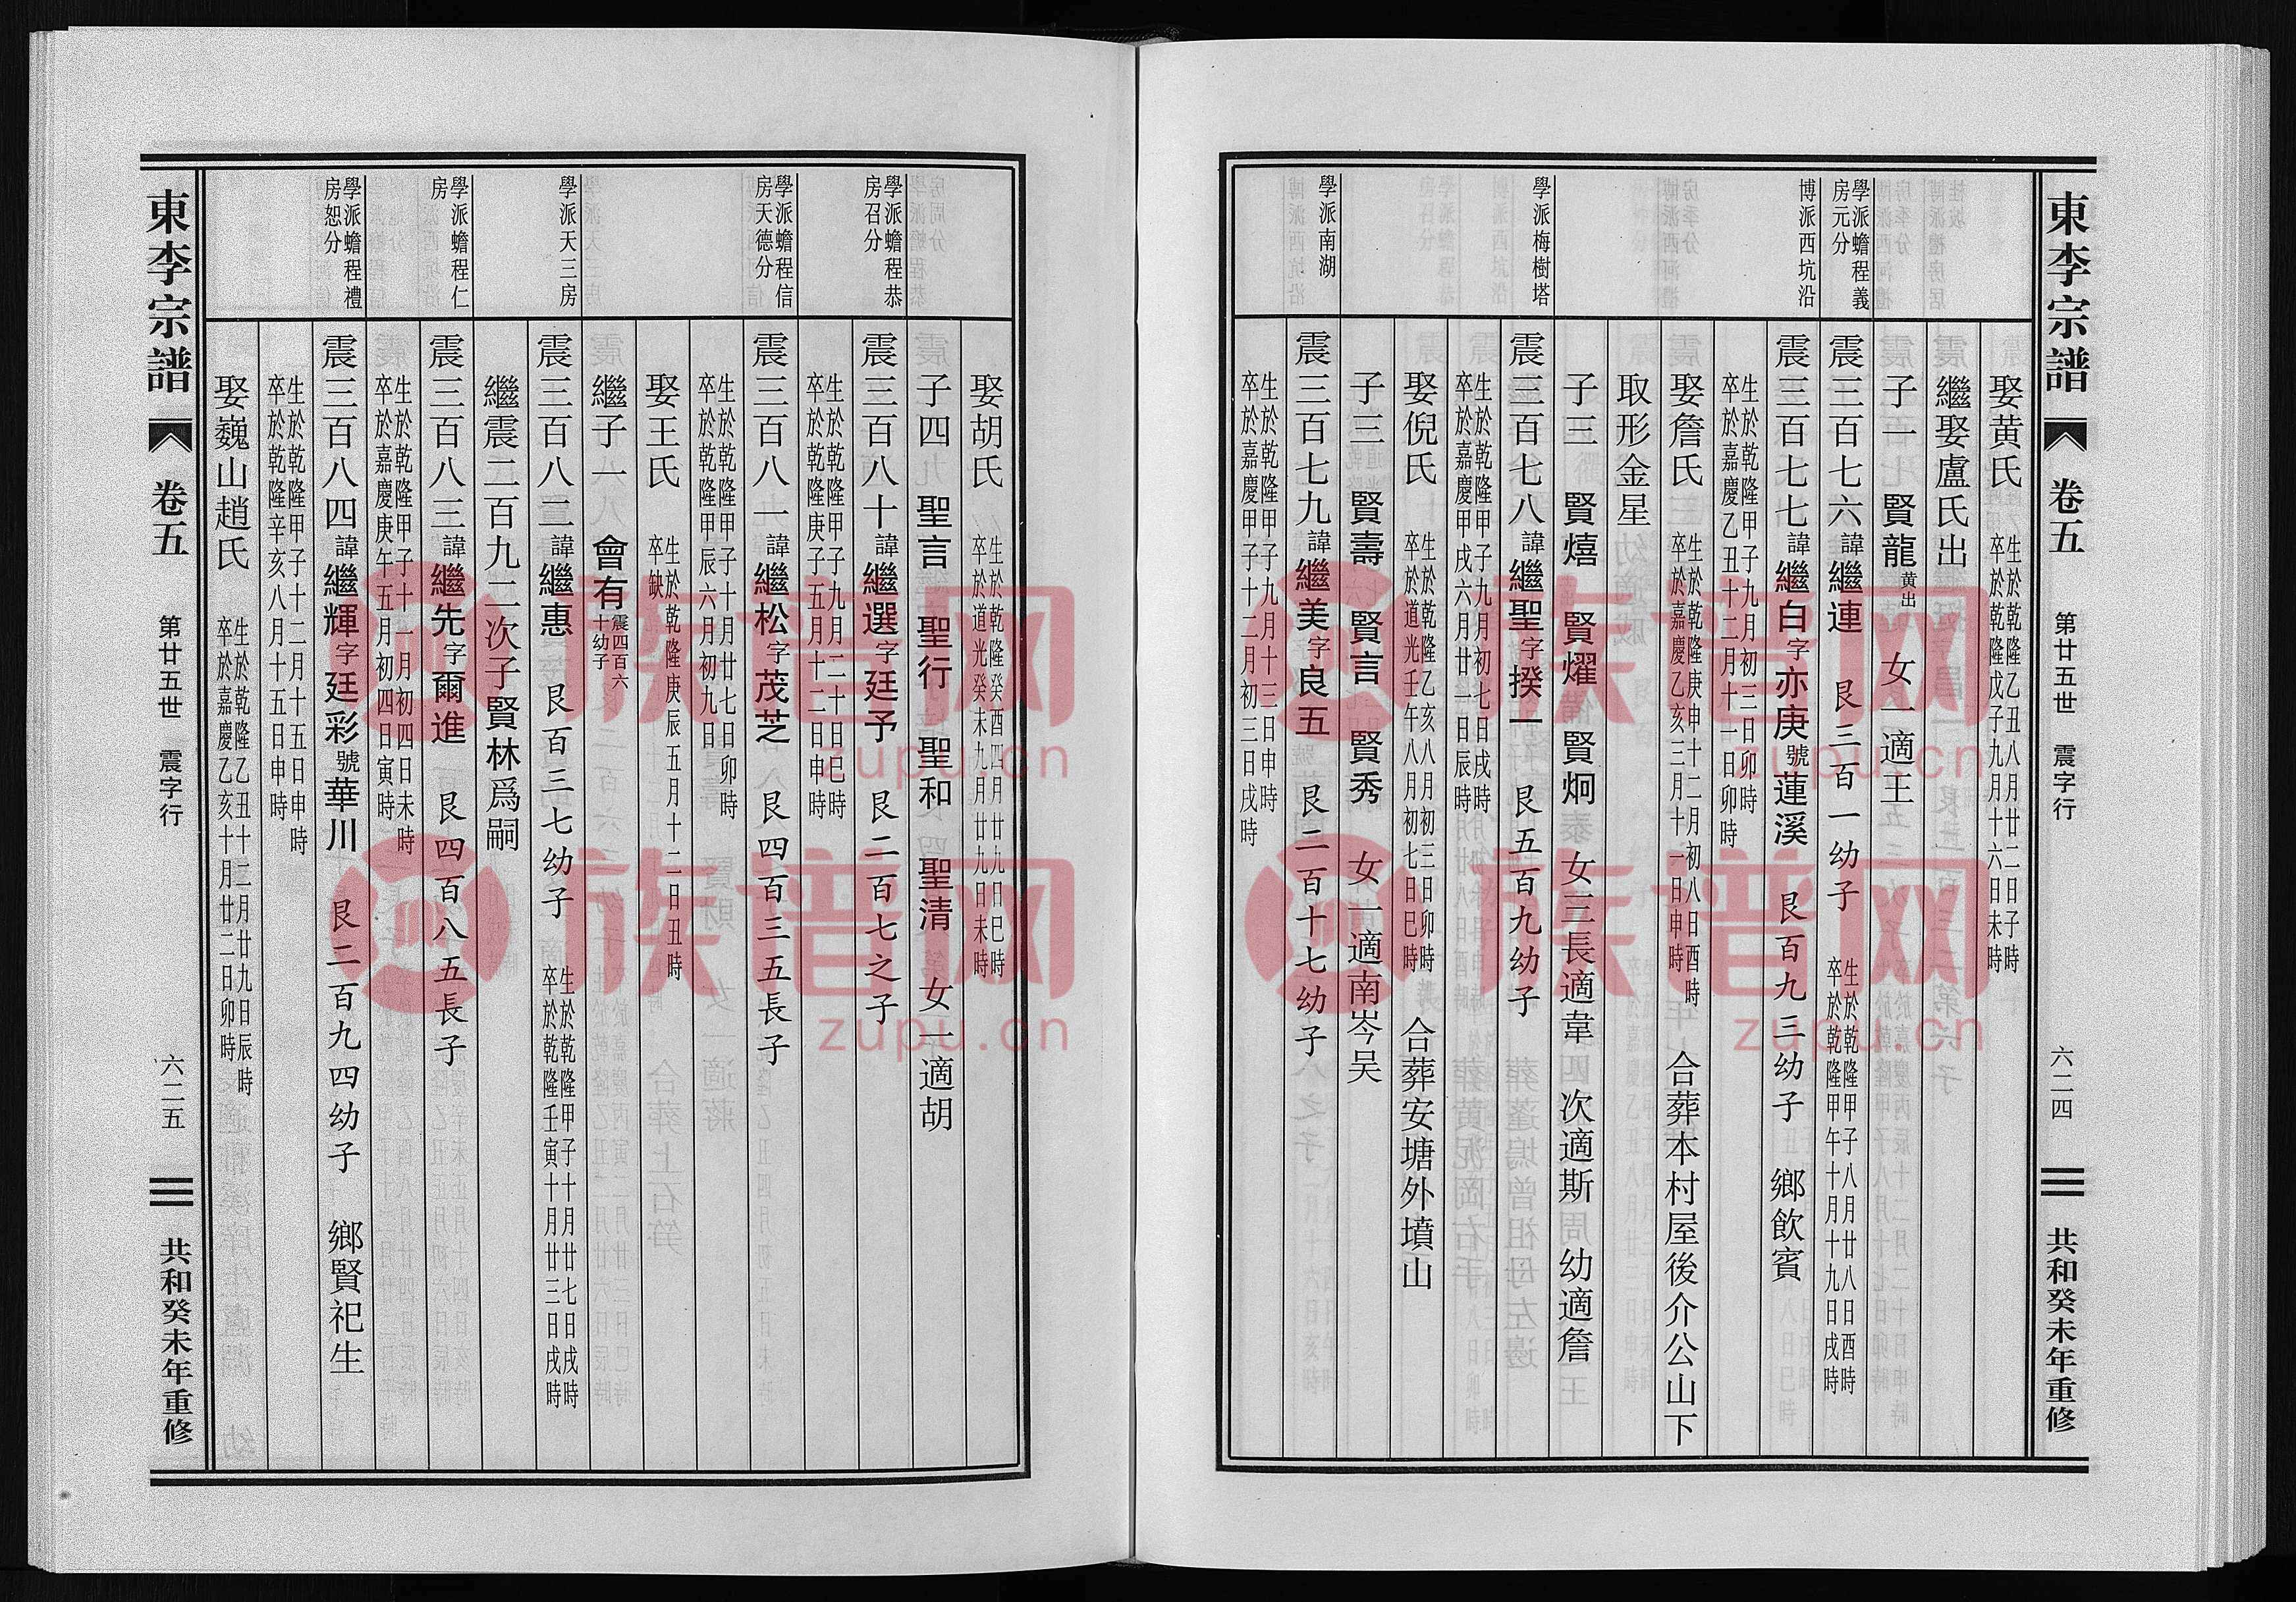 東李宗譜 卷五 第廿五世 震字行 六二四 共和癸未年重修
娶黃氏 生於乾隆乙丑八月廿二日子時 卒於乾隆戊子九月十六日未時
繼娶盧氏出
子一 賢龍 黃出 女一適王
學派蟾程義房元分
震三百七六 諱繼連 艮三百一幼子 生於乾隆甲子八月廿八日酉時 卒於乾隆甲午十月十九日戌時
博派西坑沿
震三百七七 諱繼白 字亦庚 號蓮溪 艮百九三幼子 鄉飲賓
生於乾隆甲子九月初三日卯時 卒於嘉慶乙丑十二月十一日卯時
娶詹氏 生於乾隆庚申十二月初八日酉時 卒於嘉慶乙亥三月十一日申時 合葬本村屋後介公山下
取形金星
子三 賢熺 賢燿 賢炯 女三長適韋 次適斯 幼適詹
學派梅樹塔
震三百七八 諱繼聖 字揆一 艮五百九幼子
生於乾隆甲子九月初七日戌時 卒於嘉慶甲戌六月廿一日辰時
娶倪氏 生於乾隆乙亥八月初三日卯時 卒於道光壬午八月初七日巳時 合葬安塘外墳山
子三 賢壽 賢言 賢秀 女一適南岑吴
學派南湖
震三百七九 諱繼美 字良五 艮二百十七幼子
生於乾隆甲子九月十三日申時 卒於嘉慶甲子十二月初三日戌時
娶胡氏 生於乾隆癸酉四月廿九日巳時 卒於道光癸未九月廿九日未時
子四 聖言 聖行 聖和 聖清 女一適胡
學派蟾程恭房召分
震三百八十 諱繼選 字廷予 艮二百七之子
生於乾隆甲子九月二十日巳時 卒於乾隆庚子五月十二日申時
學派蟾程信房天德分
震三百八一 諱繼松 字茂芝 艮四百三五長子
生於乾隆甲子十月廿七日卯時 卒於乾隆甲辰六月初九日
娶王氏 生於乾隆庚辰五月十二日丑時 卒缺
繼子一 會有 震四百六十幼子
學派天三房
震三百八二 諱繼惠 艮百三七幼子 生於乾隆甲子十月廿七日戌時 卒於乾隆壬寅十月廿三日戌時
繼震二百九二次子賢林爲嗣
學派蟾程仁房
震三百八三 諱繼先 字爾進 艮四百八五長子
生於乾隆甲子十一月初四日未時 卒於嘉慶庚午五月初四日寅時
學派蟾程禮房恕分
震三百八四 諱繼輝 字廷彩 號華川 艮二百九四幼子 鄉賢祀生
生於乾隆甲子十二月十五日申時 卒於乾隆辛亥八月十五日申時
娶巍山趙氏 生於乾隆乙丑十二月廿九日辰時 卒於嘉慶乙亥十月廿二日卯時
東李宗譜 卷五 第廿五世 震字行 六二五 共和癸未年重修
族普网
zupu.cn
族普网
zupu.cn
族普网
zupu.cn
族普网
zupu.cn